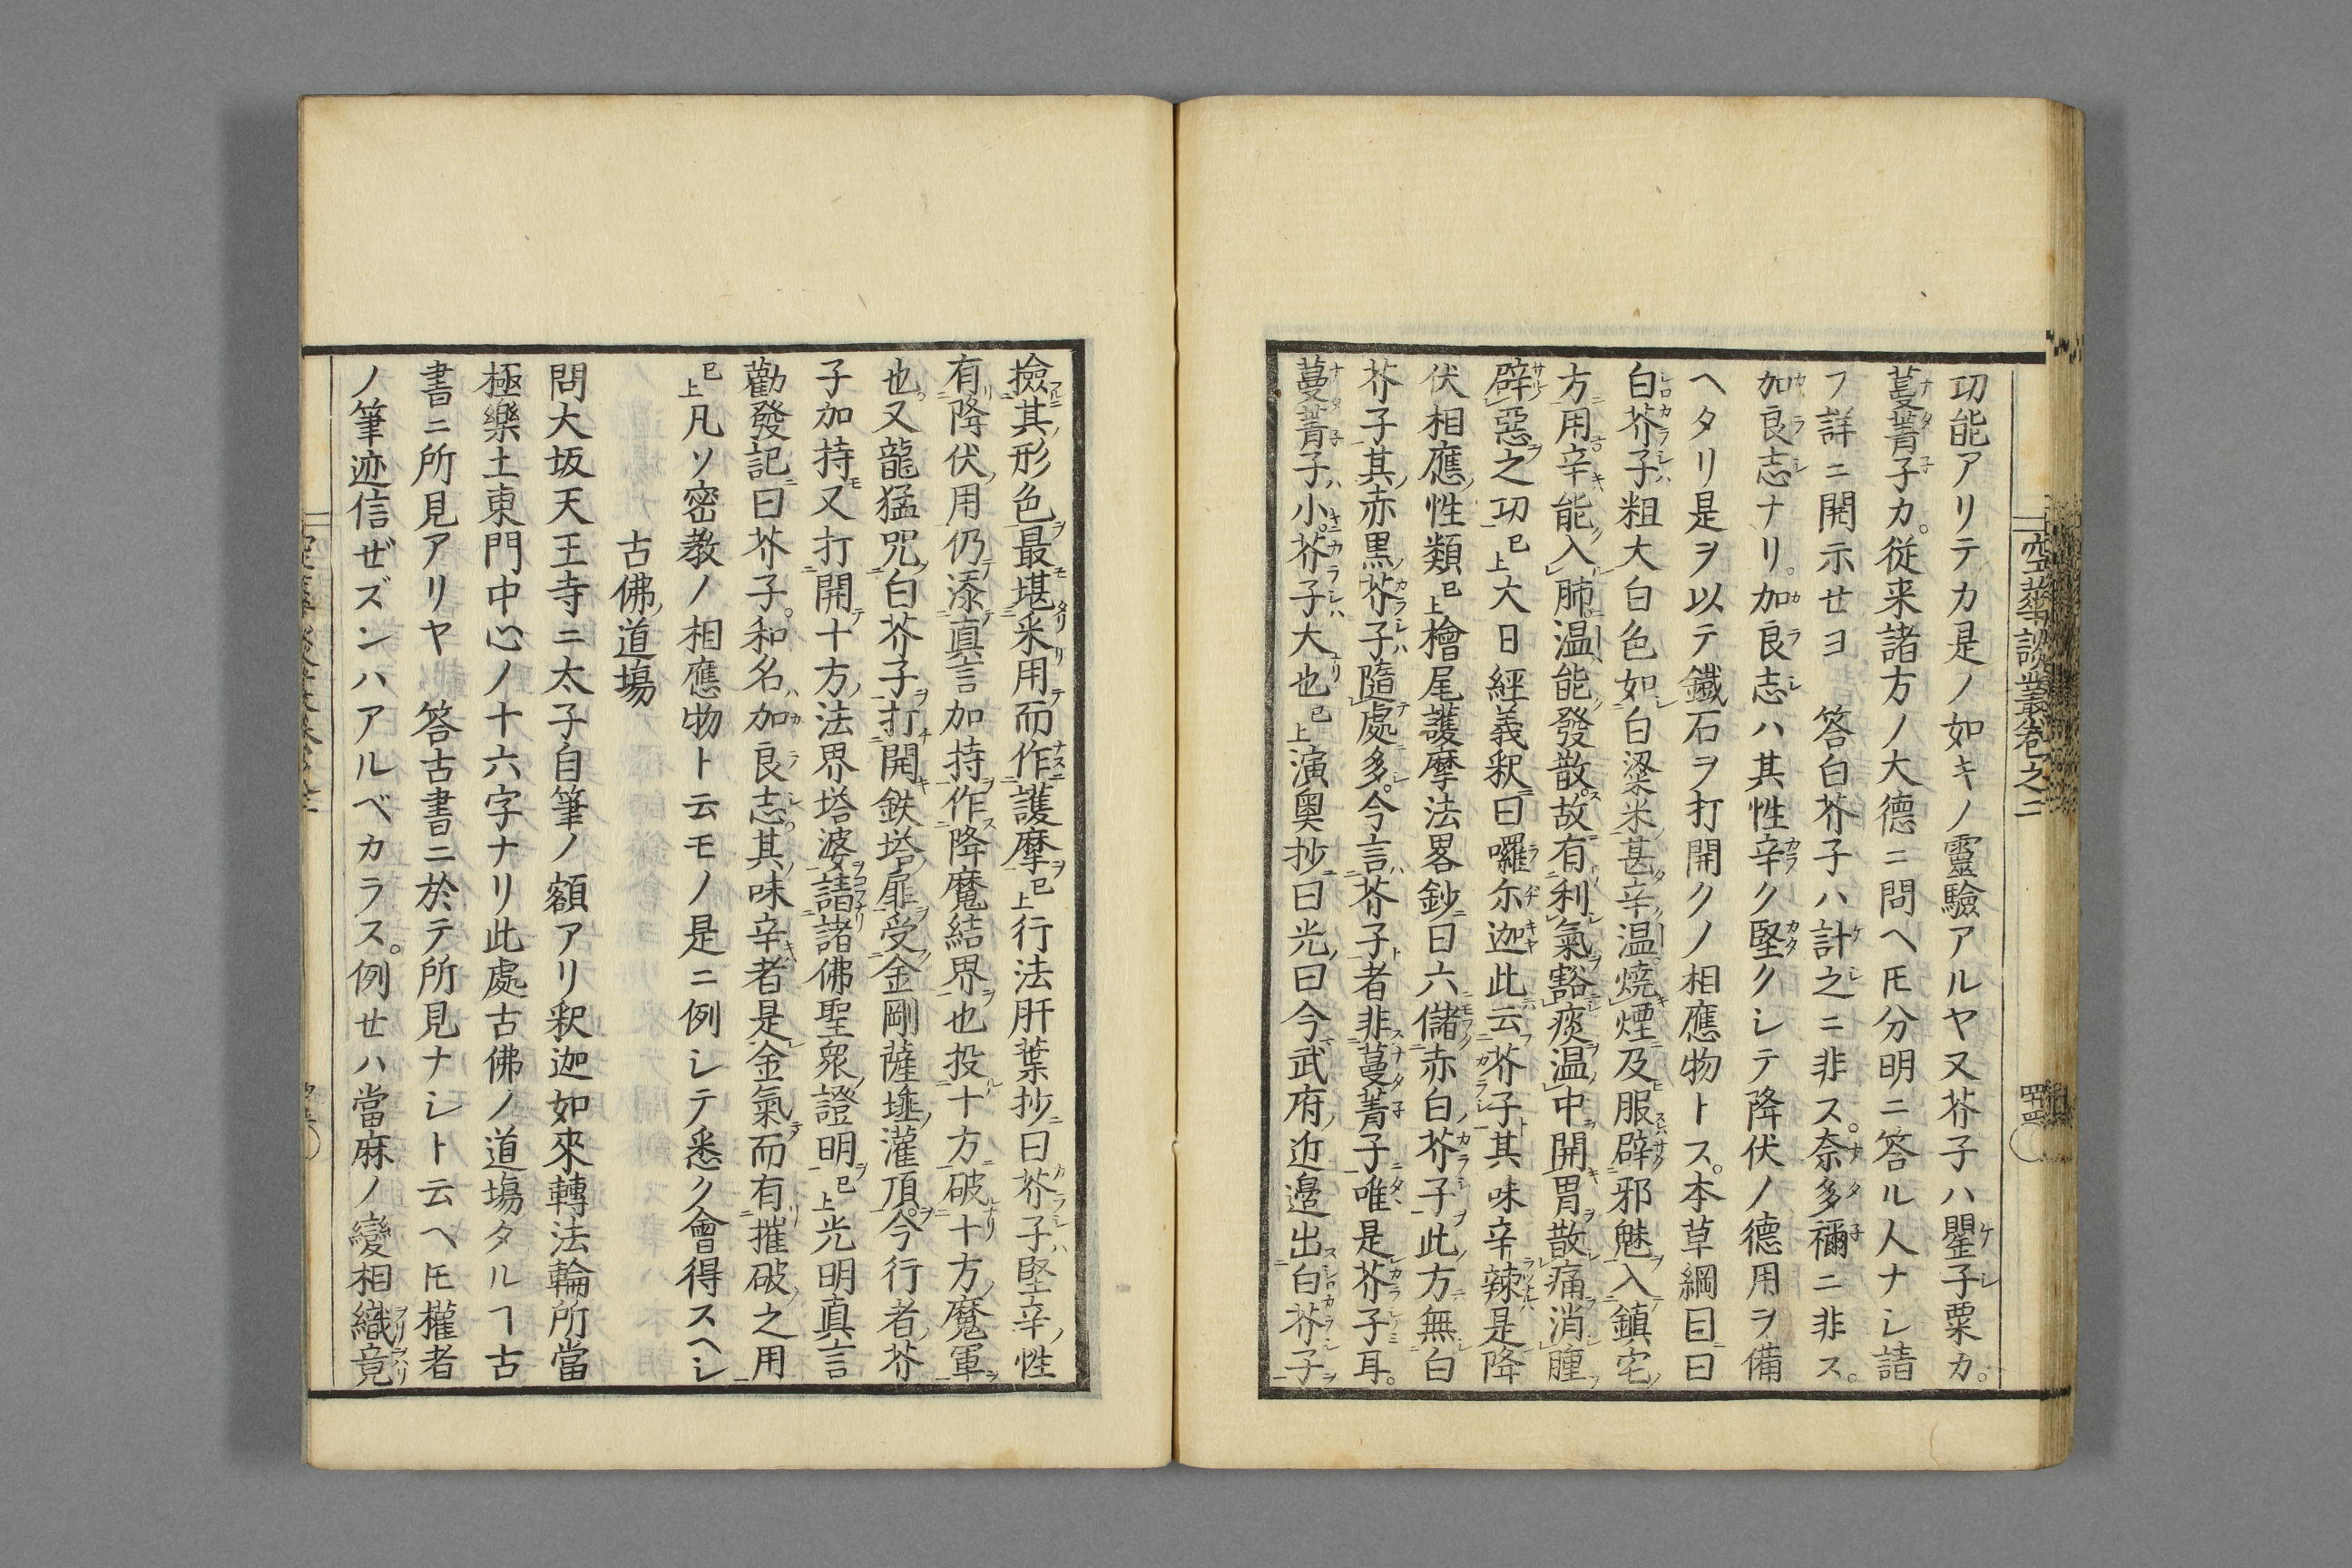 空華談叢卷之二
四十四
功能アリテカ是ノ如キノ靈驗アルヤ又芥子ハ瞿子粟カ。
蔓菁子カ。従来諸方ノ大德ニ問ヘ𪜈分明ニ答ル人ナシ請
フ詳ニ開示セヨ 答白芥子ハ計之ニ非ス。奈多禰ニ非ス。
加良志ナリ。加良志ハ其性辛ク堅クシテ降伏ノ德用ヲ備
ヘタリ是ヲ以テ鐵石ヲ打開クノ相應物トス。本草綱目曰
白芥子粗大白色如白粱米甚辛温。燒煙及服辟邪魅入鎮宅
方用。辛能入肺温能發散。故有利氣豁痰温中開胃散痛消腫
辟惡之功已上大日經義釈曰囉尓迦此云芥子其味辛辣是降
伏相應性類已上檜尾護摩法畧鈔曰六儲赤白芥子此方無白
芥子其赤黒芥子隨處多。今言芥子者非蔓菁子唯是芥子耳。
蔓菁子小。芥子大也已上演奥抄曰光曰今武府近邊出白芥子
撿其形色最堪釆用而作護摩已上行法肝葉抄曰芥子堅辛性
有降伏用仍添真言加持作降魔結界也投十方破十方魔軍
也。又龍猛咒白芥子打開鉄塔扉受金剛薩埵灌頂。今行者芥
子加持又打開十方法界塔婆請諸佛聖衆證明已上光明真言
勸發記曰芥子。和名加良志。其味辛者是金氣而有摧破之用
已上凡ソ密教ノ相應物ト云モノ是ニ例シテ悉ク會得スヘシ
古佛道場
問大坂天王寺ニ太子自筆ノ額アリ釈迦如來轉法輪所當
極樂土東門中心ノ十六字ナリ此處古佛ノ道場タルヿ古
書ニ所見アリヤ 答古書ニ於テ所見ナシト云ヘ𪜈權者
ノ筆迹信ぜズンハアルベカラス。例セハ當麻ノ變相織竟